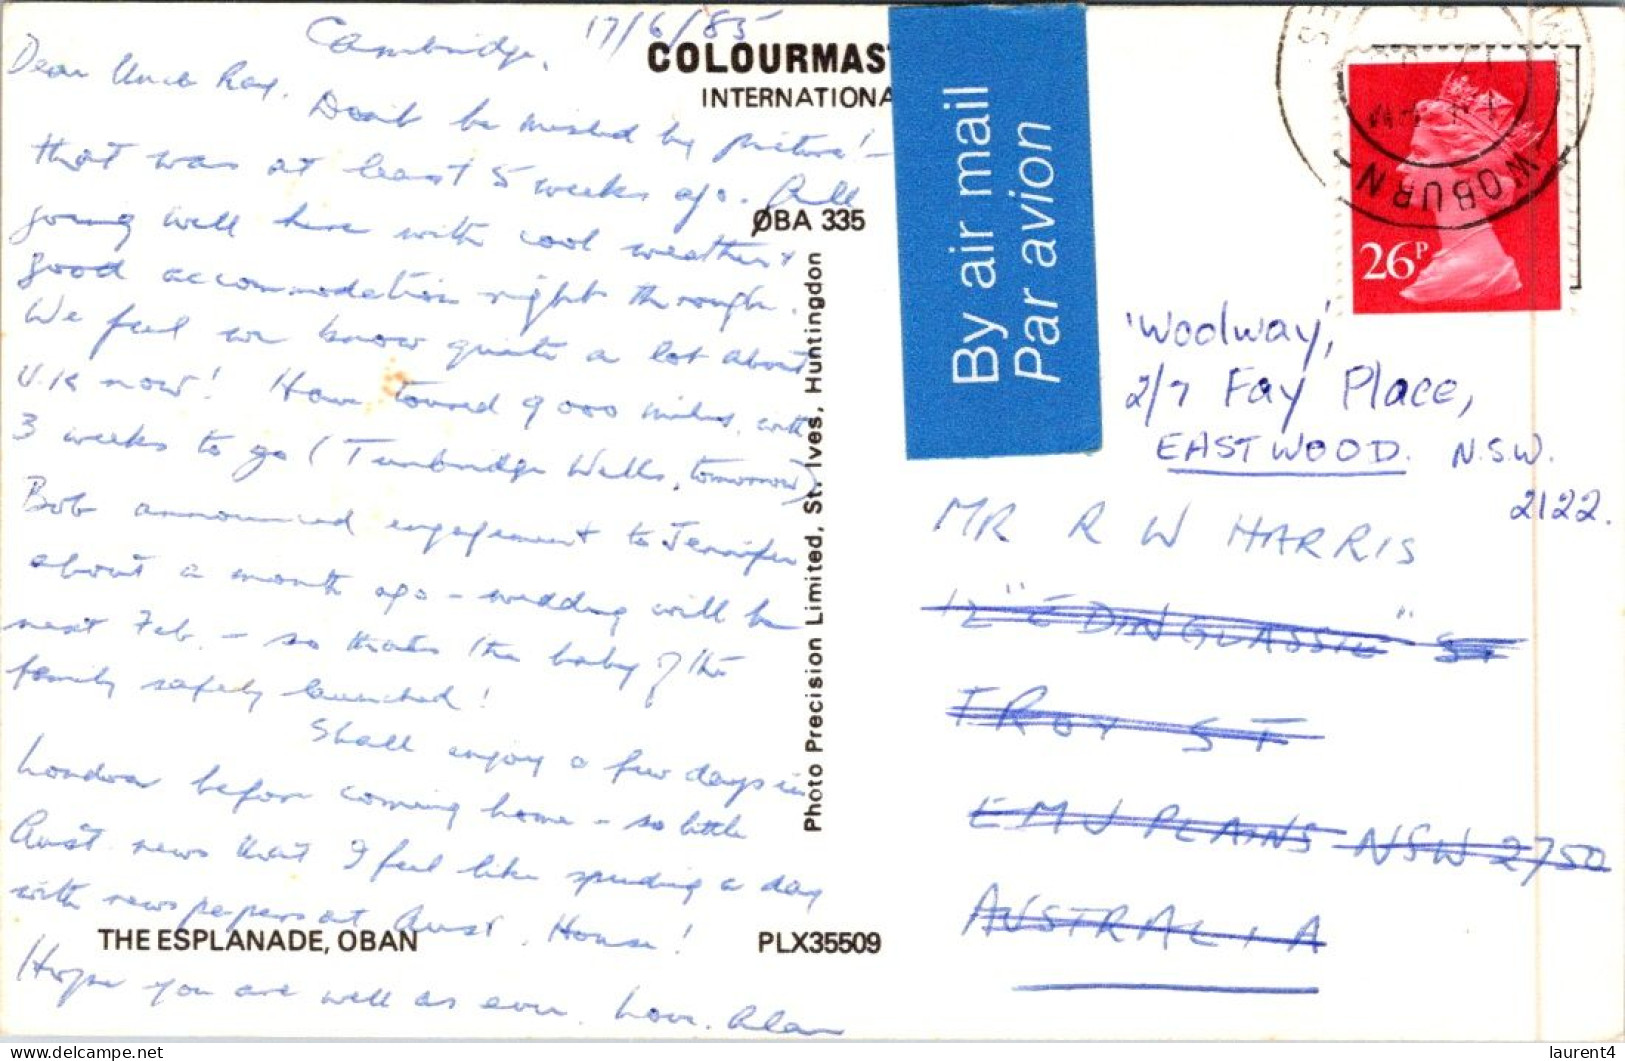 Cambridge, 17/6/85
Dear Uncle Ray,
Don't be misled by picture! -
that was at least 5 weeks ago. All
going well here with cool weather &
good accommodation right through.
We feel we know quite a lot about
U.K now! Have toured 9000 miles, with
3 weeks to go (Tunbridge Wells, tomorrow)
Bob announced engagement to Jennifer
about a month ago - wedding will be
next Feb. - so thats the baby of the
family safely launched!
Shall enjoy a few days in
London before coming home - so little
Aust. news that I feel like spending a day
with newspapers at Aust. House!
Hope you are well as ever. Love. Alan
COLOURMAS
INTERNATIONA
ØBA 335
Photo Precision Limited, St. Ives, Huntingdon
THE ESPLANADE, OBAN
PLX35509
By air mail
Par avion
WOBURN
26P
'Woolway',
2/7 Fay Place,
EASTWOOD. N.S.W.
2122.
MR R W HARRIS
12 "EDINGLASSIE" ST
TROY ST
EMU PLAINS NSW 2750
AUSTRALIA
laurent4